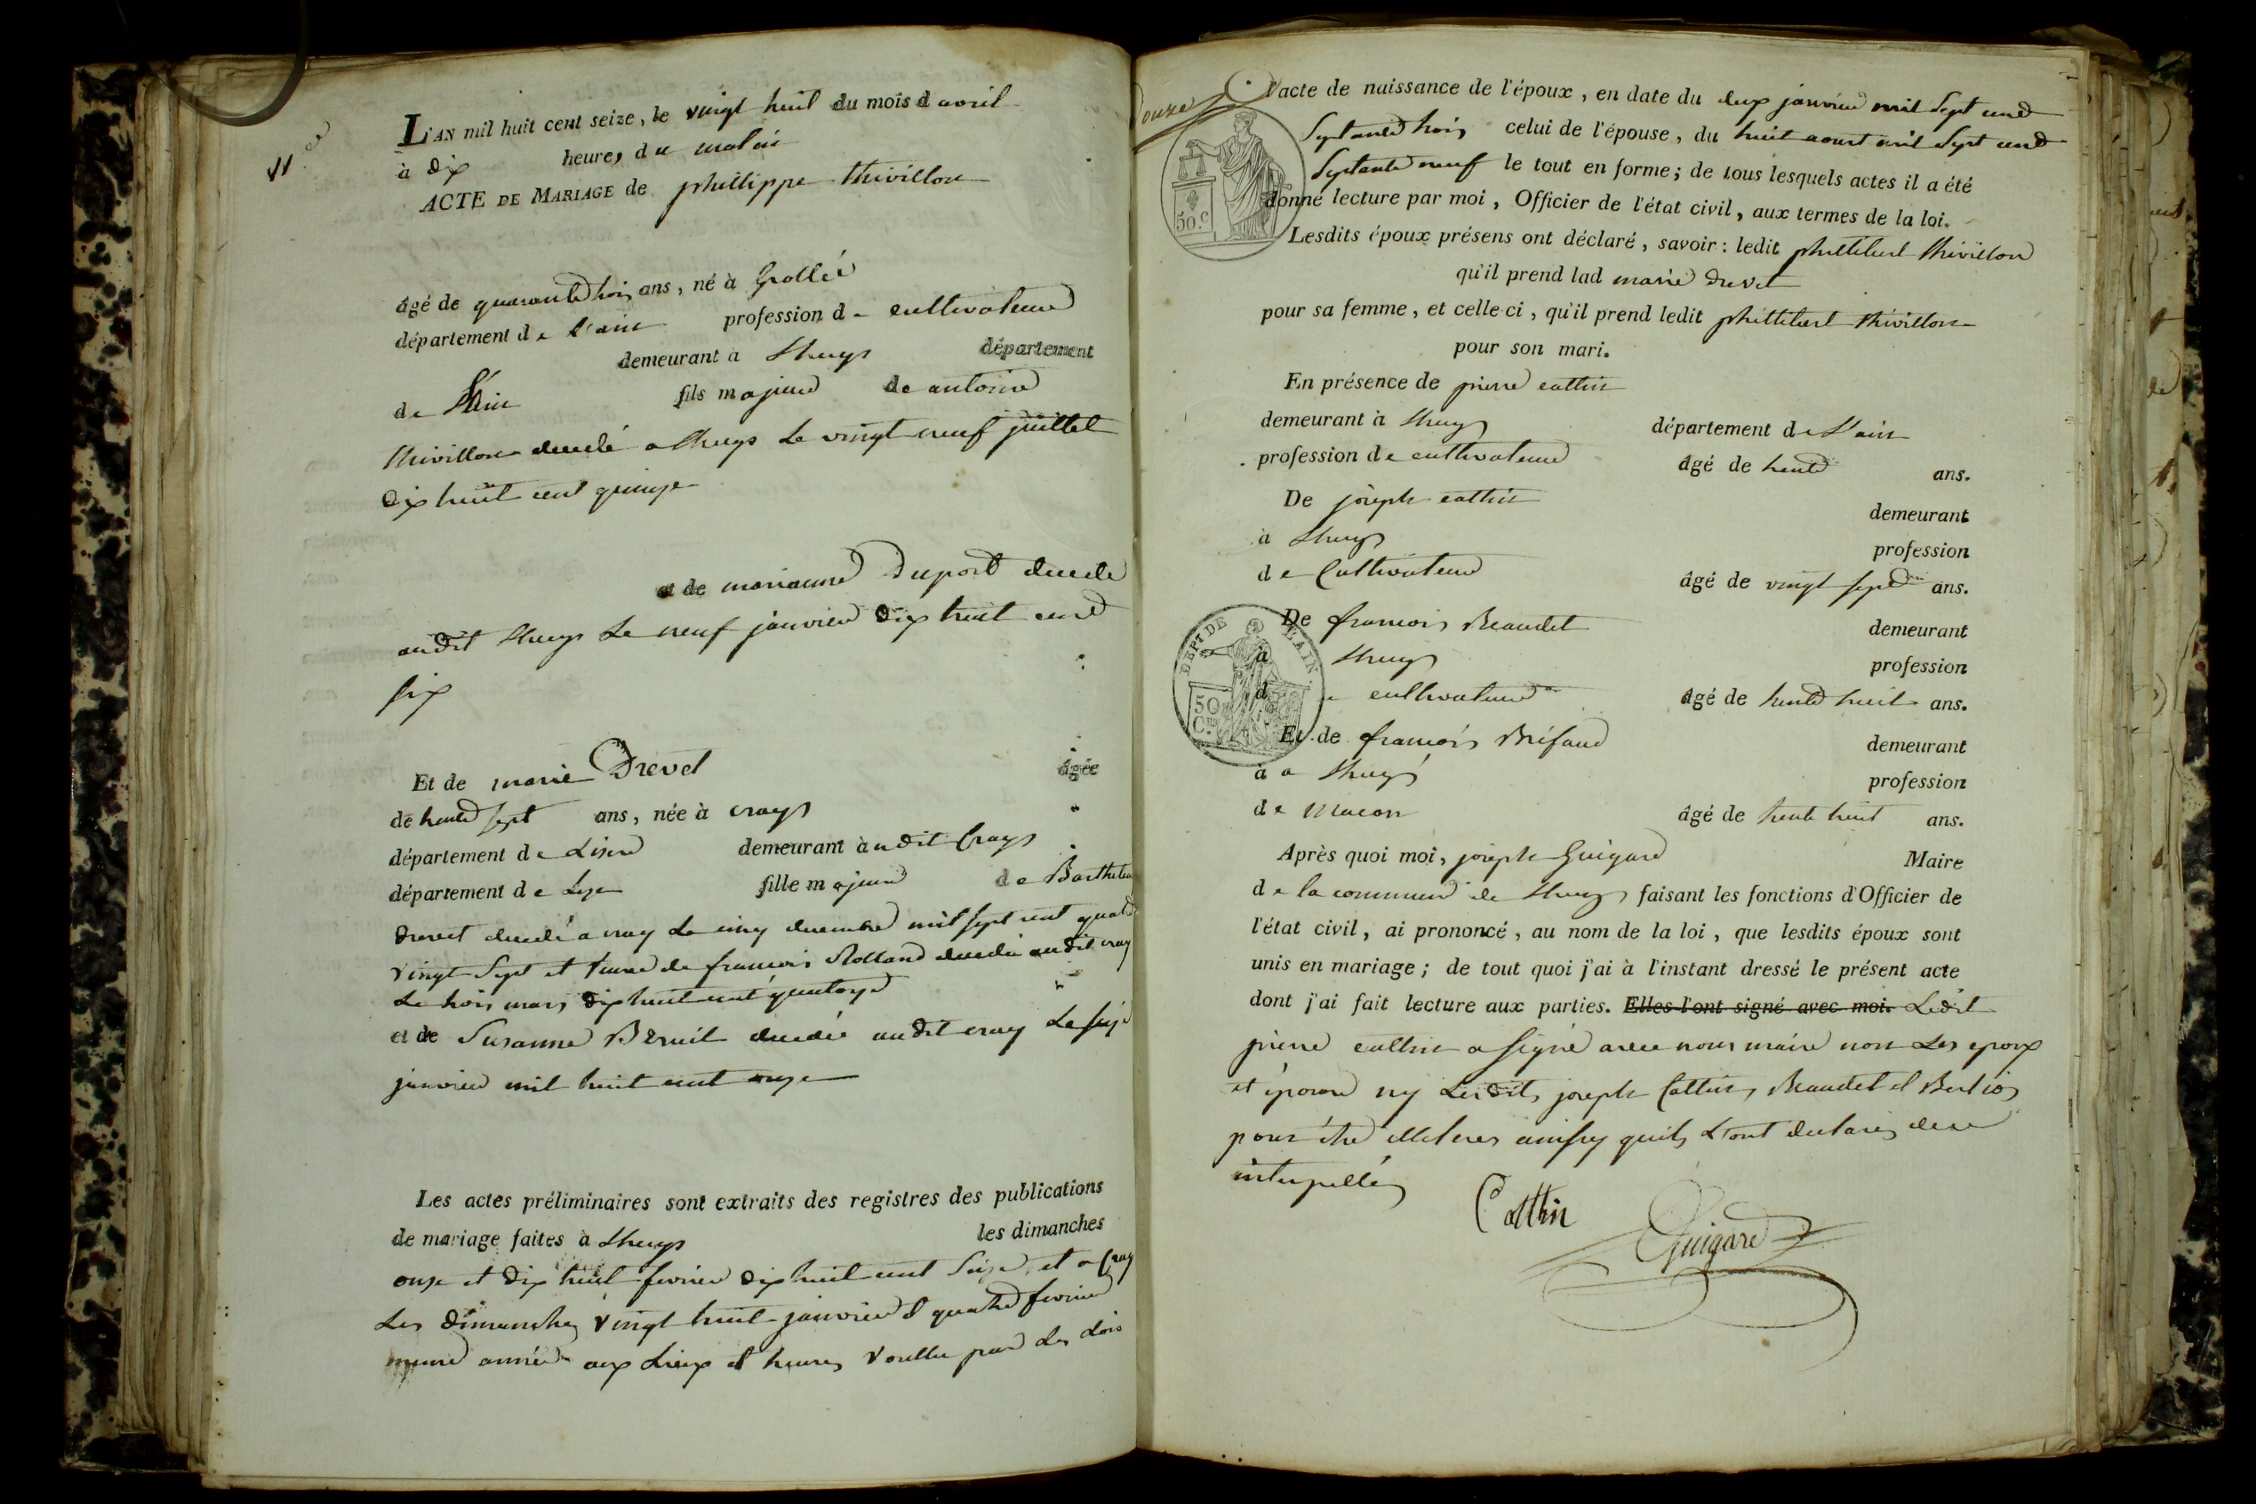 11
L'AN mil huit cent seize, le vingt huit du mois d avril
à dix heures du matin
ACTE DE MARIAGE de phillippe thivillon
âgé de quarante trois ans, né à Grollée
département de l'ain profession d cultivateur
demeurant à Lhuys département
de L'Ain fils majeur de antoine
thivillon decedé a Lhuys Le vingt neuf juillet
dix huit cent quinze
et de marianne Duport decedé
audit Lhuys Le neuf janvier dix huit cent
six
Et de marie Drevet âgée
de trente sept ans, née à crays
département de Lisere demeurant audit Crays
département de Lizer fille majeure de Barthelem
drevet decedé a cray Le cinq decembre mil sept cent quatre
vingt Sept et veuve de francois Rolland decedé audit cray
Le trois mars dix huit cent quatorze
et de Susanne decedée audit cray Le seize
janvier mil huit cent onze
Les actes préliminaires sont extraits des registres des publications
de mariage faites à Lhuys les dimanches
onze et dix huit fevrier dix huit cent Seize, et a Cray
Les Dimanches vingt huit janvier & quatre fevrier
meme année aux Lieux et heures voullu par Les Lois
douze
l'acte de naissance de l'époux, en date du deux janvier mil sept cent
Septante trois celui de l'épouse, du huit aoust mil Sept cent
Septante neuf le tout en forme; de tous lesquels actes il a été
donné lecture par moi, Officier de l'état civil, aux termes de la loi.
50.C
Lesdits époux présens ont déclaré, savoir: ledit phillibert thivillon
qu'il prend lad marie drevet
pour sa femme, et celle-ci, qu'il prend ledit phillibert thivillon
pour son mari.
En présence de pierre cattin
demeurant à Lhuys département de L'ain
profession de cultivateur âgé de trente ans.
De joseph cattin demeurant
à Lhuys profession
de Cultivateur âgé de vingt sept ans.
De francois Beaudet demeurant
à Lhuys profession
de cultivateur âgé de trente huit ans.
DEPT DE L'AIN
50 Ces
Et de francois Brifaud demeurant
à a Lhuys profession
de Macon âgé de trente huit ans.
Après quoi moi, joseph Guigard Maire
de la commune de Lhuys faisant les fonctions d'Officier de
l'état civil, ai prononcé, au nom de la loi, que lesdits époux sont
unis en mariage; de tout quoi j'ai à l'instant dressé le présent acte
dont j'ai fait lecture aux parties. Elles l'ont signé avec moi. Ledit
pierre cattin a signé avec nous maire non Les epoux
et épouse ny Lesdits joseph Cattin, Beaudet et
pour être illeteres ainsy quils L'ont declarés de ce
interpellés
Cattin
Guigard